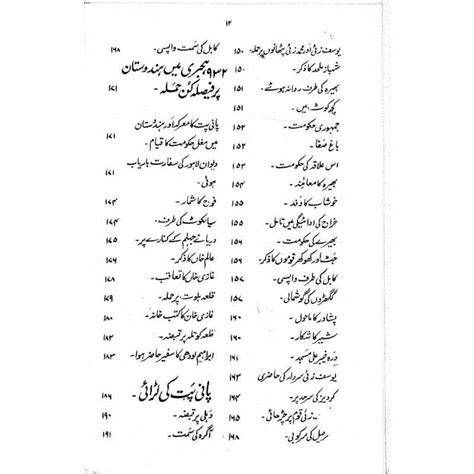 ۱۴
یوسف زئی اور محمد زئی پٹھانوں پر حملہ ۱۵۰
شہباز ملحد کا ذکر۔ ۱۵۰
بھیرہ کی طرف روانہ ہوئے۔ ۱۵۱
کچھ کوٹ میں۔ ۱۵۱
جمہوری حکومت۔ ۱۵۲
باغ صفا۔ ۱۵۲
اس علاقہ کی حکومت۔ ۱۵۳
بھیرہ کا معائنہ۔ ۱۵۴
خوشاب کا وفد۔ ۱۵۵
خراج کی ادائیگی میں تامل۔ ۱۵۵
بھیرے کی حکومت۔ ۱۵۶
جٹ اور کھوکھر قوموں کا ذکر۔ ۱۵۶
کابل کی طرف واپسی۔ ۱۵۷
گکھڑوں کی گوشمالی۔ ۱۵۷
پشاور کا ماحول۔ ۱۶۰
شیر کا شکار۔ ۱۶۰
درہ خیبر علی مسجد۔ ۱۶۱
یوسف زئی سردار کی حاضری ۱۶۳
کردیز کی سرحد پر۔ ۱۶۴
زئی قوم پر چڑھائی۔ ۱۶۵
کی سرکوبی۔ ۱۶۸
کابل کی سمت واپسی۔ ۱۶۸
۹۳۲ ہجری میں ہندوستان
پر فیصلہ کن حملہ۔ ۱۷۱
پانی پت کا معرکہ اور ہندوستان
میں مغل حکومت کا قیام۔ ۱۷۱
دیوان لاہور کی سفارت باریاب
ہوئی۔
فوج کا شمار۔ ۱۷۴
سیالکوٹ کی طرف۔ ۱۷۴
دریائے جہلم کے کنارے پر۔ ۱۷۵
عالم خاں کا ذکر۔ ۱۷۶
غازی خاں کا تعاقب۔ ۱۷۸
قلعہ بلوت پر حملہ۔ ۱۷۹
غازی خاں کا کتب خانہ۔ ۱۸۰
قلعہ کوٹلہ پر قبضہ۔ ۱۸۲
ابراہیم لودھی کا سفیر حاضر ہوا۔ ۱۸۳
پانی پت کی لڑائی۔ ۱۸۶
دہلی پر قبضہ۔ ۱۹۰
آگرہ کی سمت۔ ۱۹۱